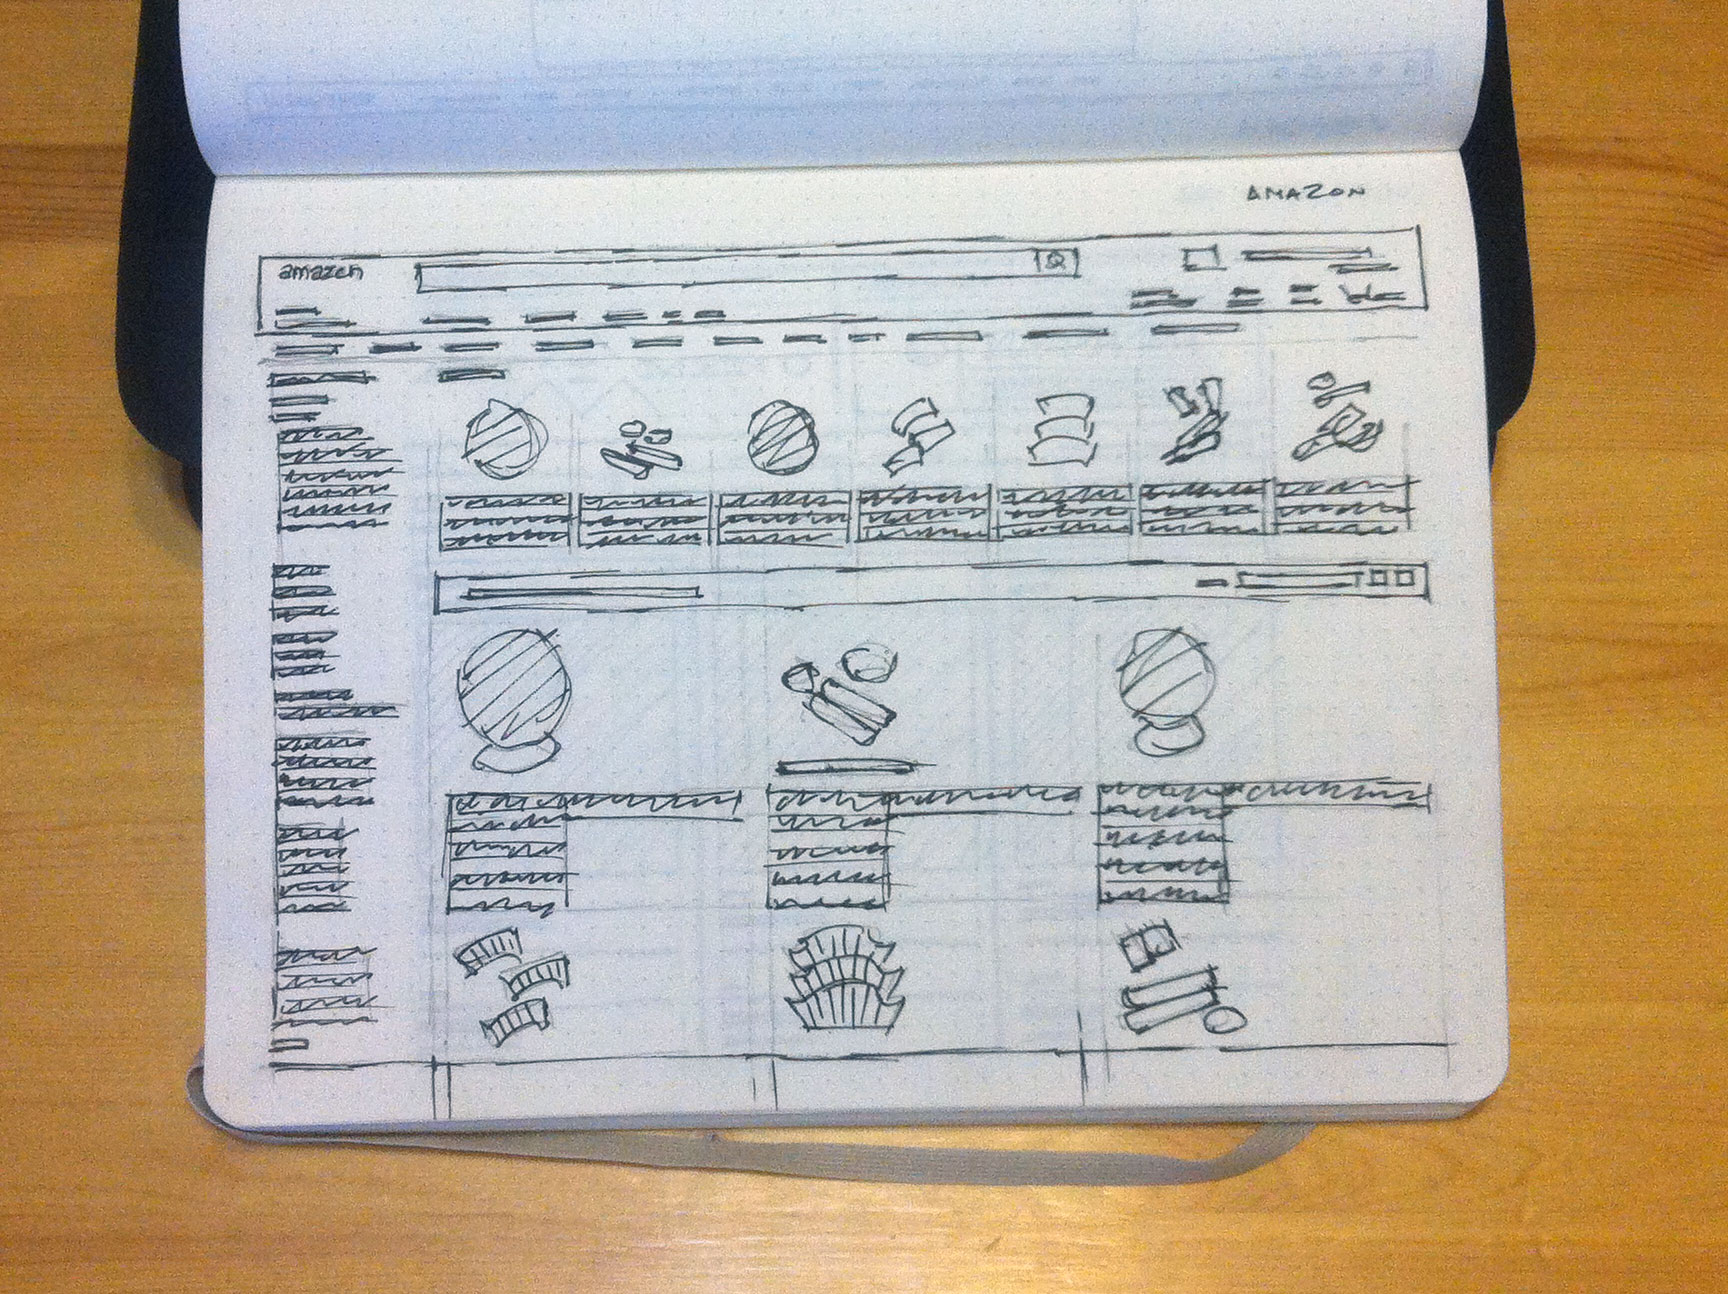 AMAZON
amazon